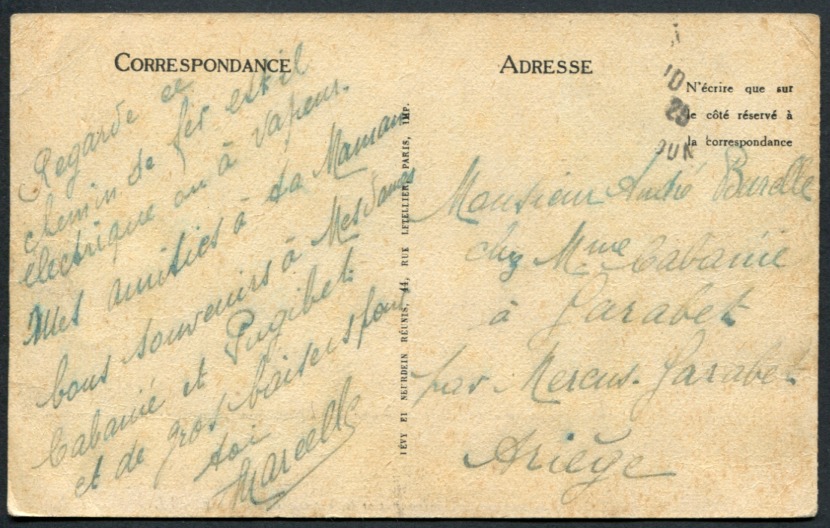 CORRESPONDANCE
Regarde ce
chemin de fer est-il
électrique ou à vapeur.
Mes amitiés à ta Maman
bons souvenirs à Mesdames
Cabanié et Pugibet.
et de gros baisers pour
toi
Marcelle
LÉVY ET NEURDEIN RÉUNIS, 44, RUE LETELLIER, PARIS, IMP.
ADRESSE
N'écrire que sur
le côté réservé à
la correspondance
10
29
JUN
Monsieur André Burelle
chez Mme Cabanié
à Garabet
par Mercus-Garabet
Ariège